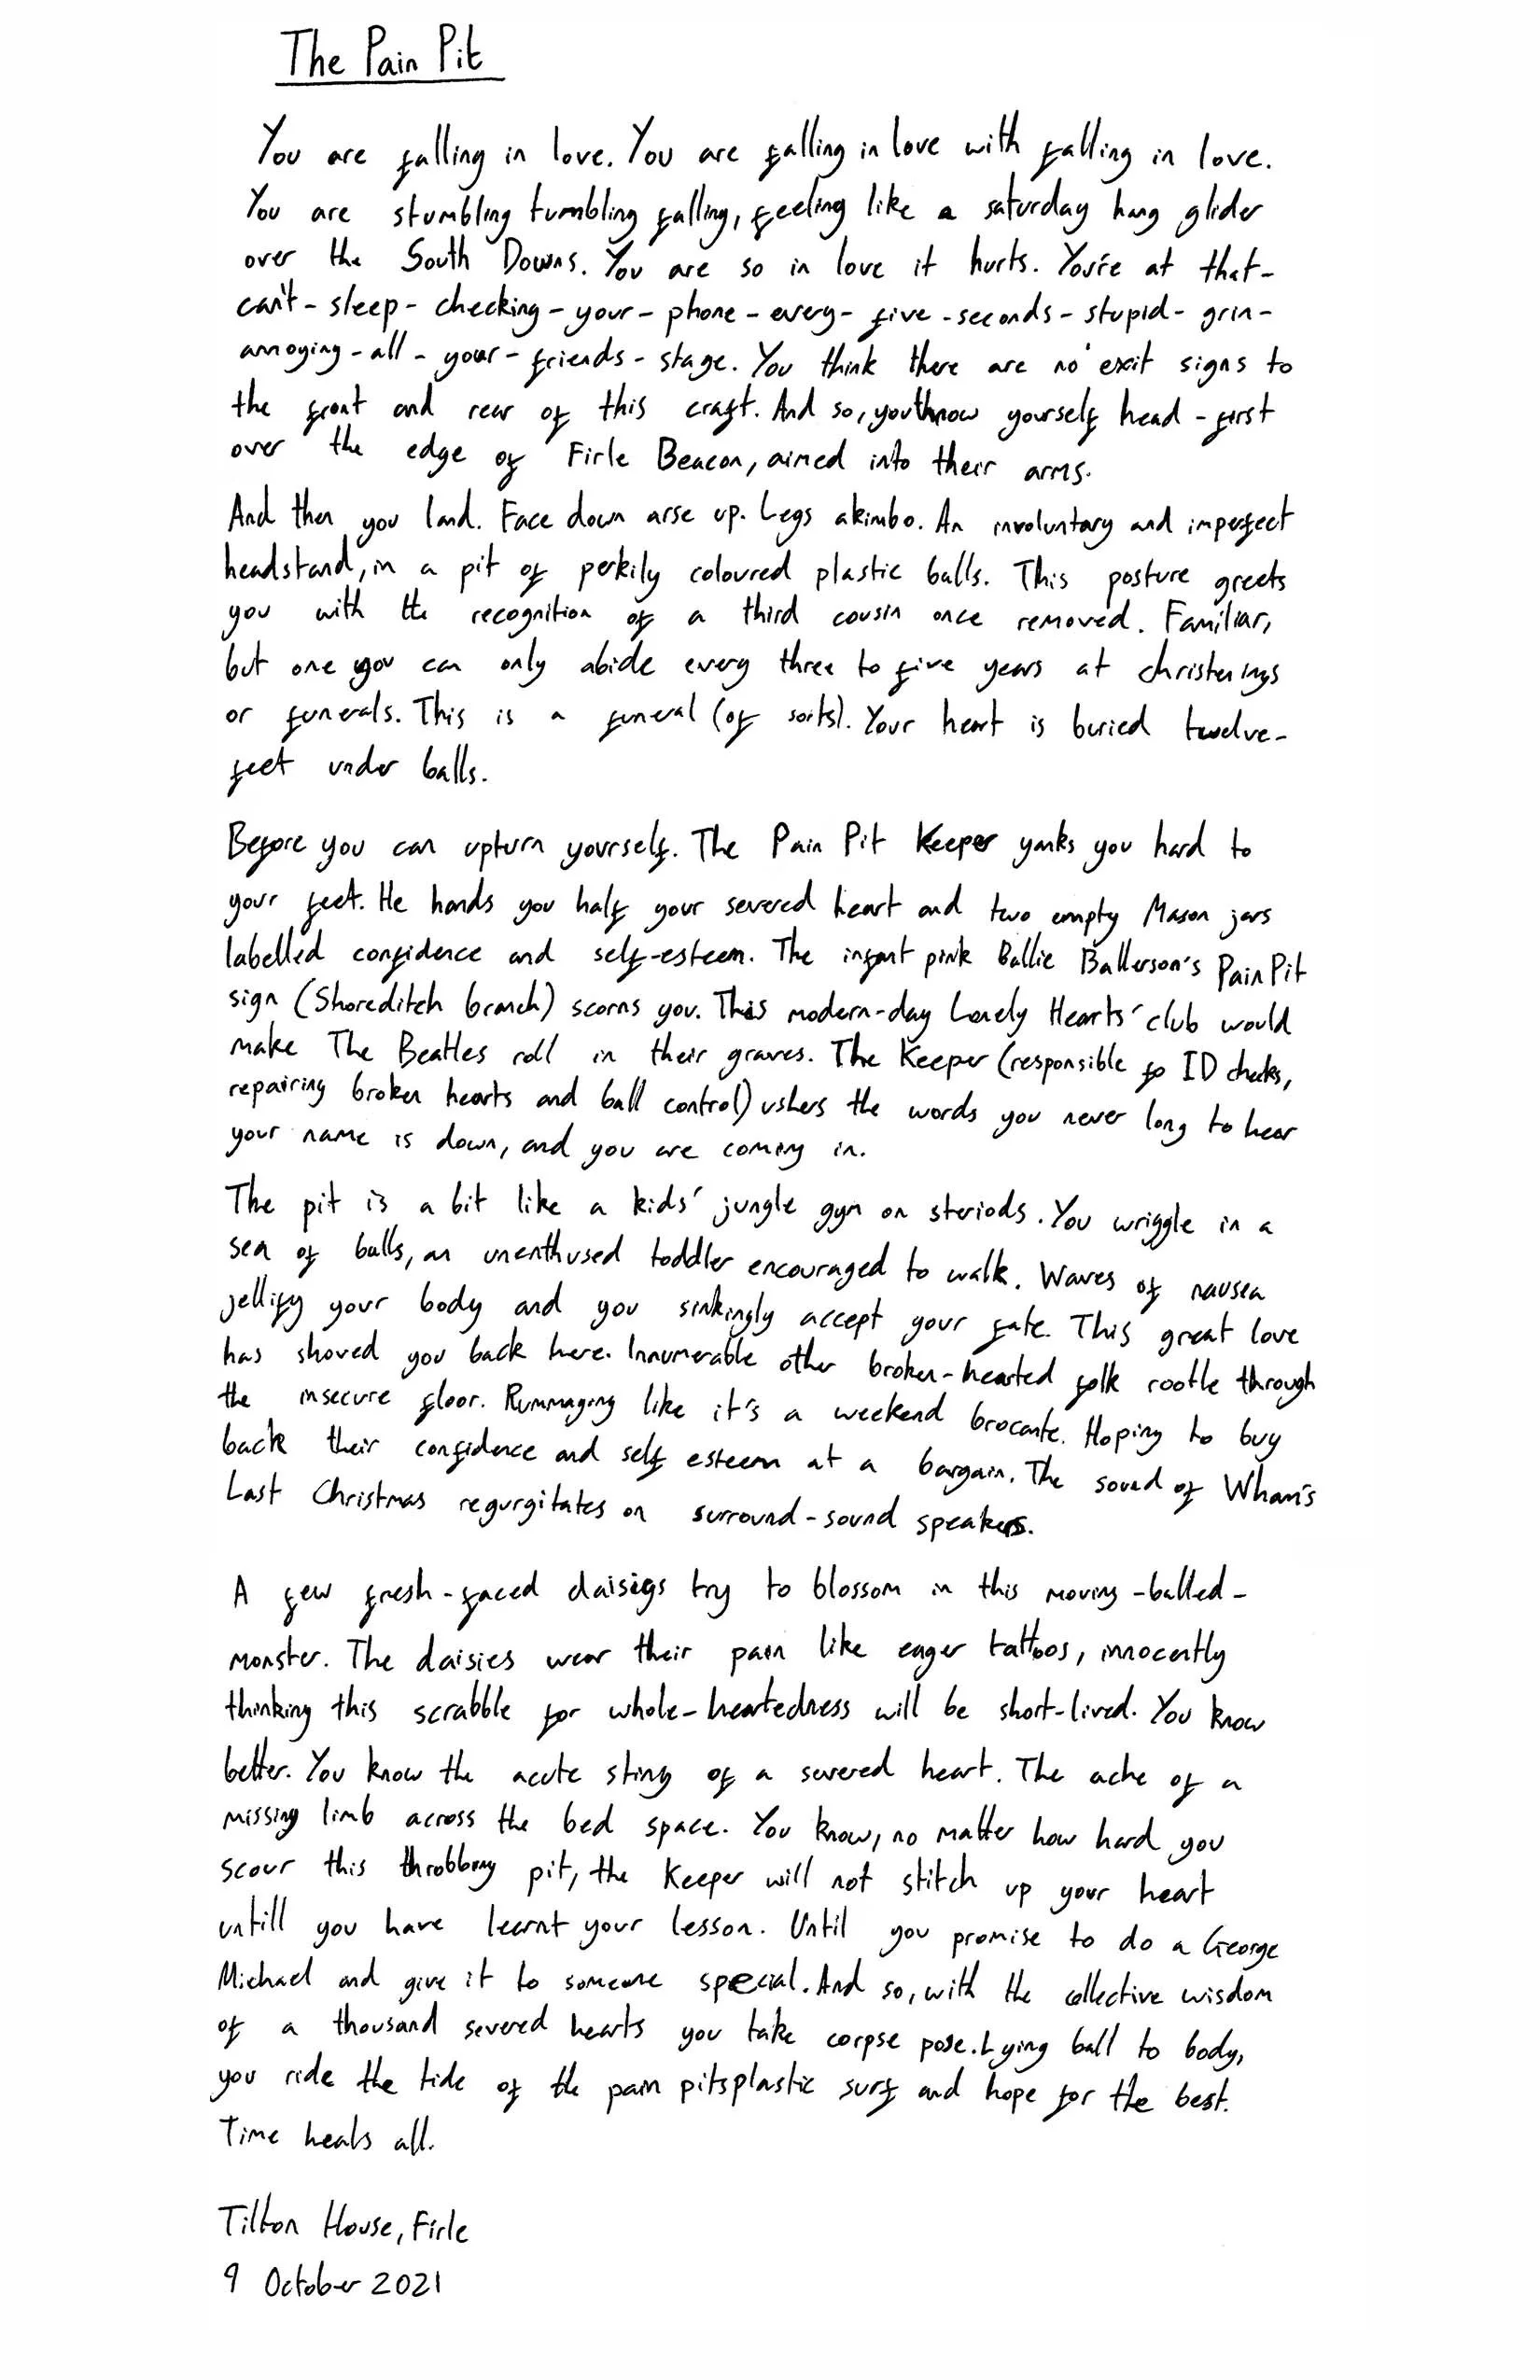 The Pain Pit
You are falling in love. You are falling in love with falling in love.
You are stumbling tumbling falling, feeling like a saturday hang glider
over the South Downs. You are so in love it hurts. You're at that-
can't-sleep-checking-your-phone-every-five-seconds-stupid-grin-
annoying-all-your-friends-stage. You think there are no exit signs to
the front and rear of this craft. And so, you throw yourself head-first
over the edge of Firle Beacon, aimed into their arms.
And then you land. Face down arse up. Legs akimbo. An involuntary and imperfect
headstand, in a pit of perkily coloured plastic balls. This posture greets
you with the recognition of a third cousin once removed. Familiar,
but one you can only abide every three to five years at christenings
or funerals. This is a funeral (of sorts). Your heart is buried twelve-
feet under balls.
Before you can upturn yourself. The Pain Pit Keeper yanks you hard to
your feet. He hands you half your severed heart and two empty Mason jars
labelled confidence and self-esteem. The infant pink Ballie Ballerson's Pain Pit
sign (Shoreditch branch) scorns you. This modern-day Lonely Hearts' club would
make The Beatles roll in their graves. The Keeper (responsible fo ID checks,
repairing broken hearts and ball control) ushers the words you never long to hear
your name is down, and you are coming in.
The pit is a bit like a kids' jungle gym on steriods. You wriggle in a
sea of balls, an unenthused toddler encouraged to walk. Waves of nausea
jellify your body and you sinkingly accept your fate. This great love
has shoved you back here. Innumerable other broken-hearted folk rootle through
the insecure floor. Rummaging like it's a weekend brocante. Hoping to buy
back their confidence and self esteem at a bargain. The sound of Wham's
Last Christmas regurgitates on surround-sound speakers.
A few fresh-faced daisies try to blossom in this moving-balled-
monster. The daisies wear their pain like eager tattoos, innocently
thinking this scrabble for whole-heartedness will be short-lived. You know
better. You know the acute sting of a severed heart. The ache of a
missing limb across the bed space. You know, no matter how hard you
scour this throbbing pit, the Keeper will not stitch up your heart
untill you have learnt your lesson. Until you promise to do a George
Michael and give it to someone special. And so, with the collective wisdom
of a thousand severed hearts you take corpse pose. Lying ball to body,
you ride the tide of the pain pits plastic surf and hope for the best.
Time heals all.
Tilton House, Firle
9 October 2021